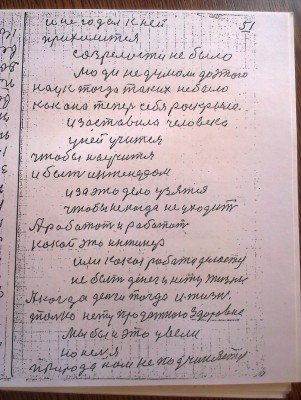 51
и не годен к ней
прихилится
созрелости не было
люди не думали до этого
наук тогда таких небыло
как она тепер себя роскрыла.
и заставила человека
у ней учится
чтобы научится
и быт интендом
и за это дело узятся
чтобы некогда не уходит
А работат и работат
какой это
или какой работа делаету
не быть денег и нету жизни
А когда денги тогда и жизн.
только нету продажного Здоровье
мы бы и это увели
но нелзя
природа нам не подчиняется